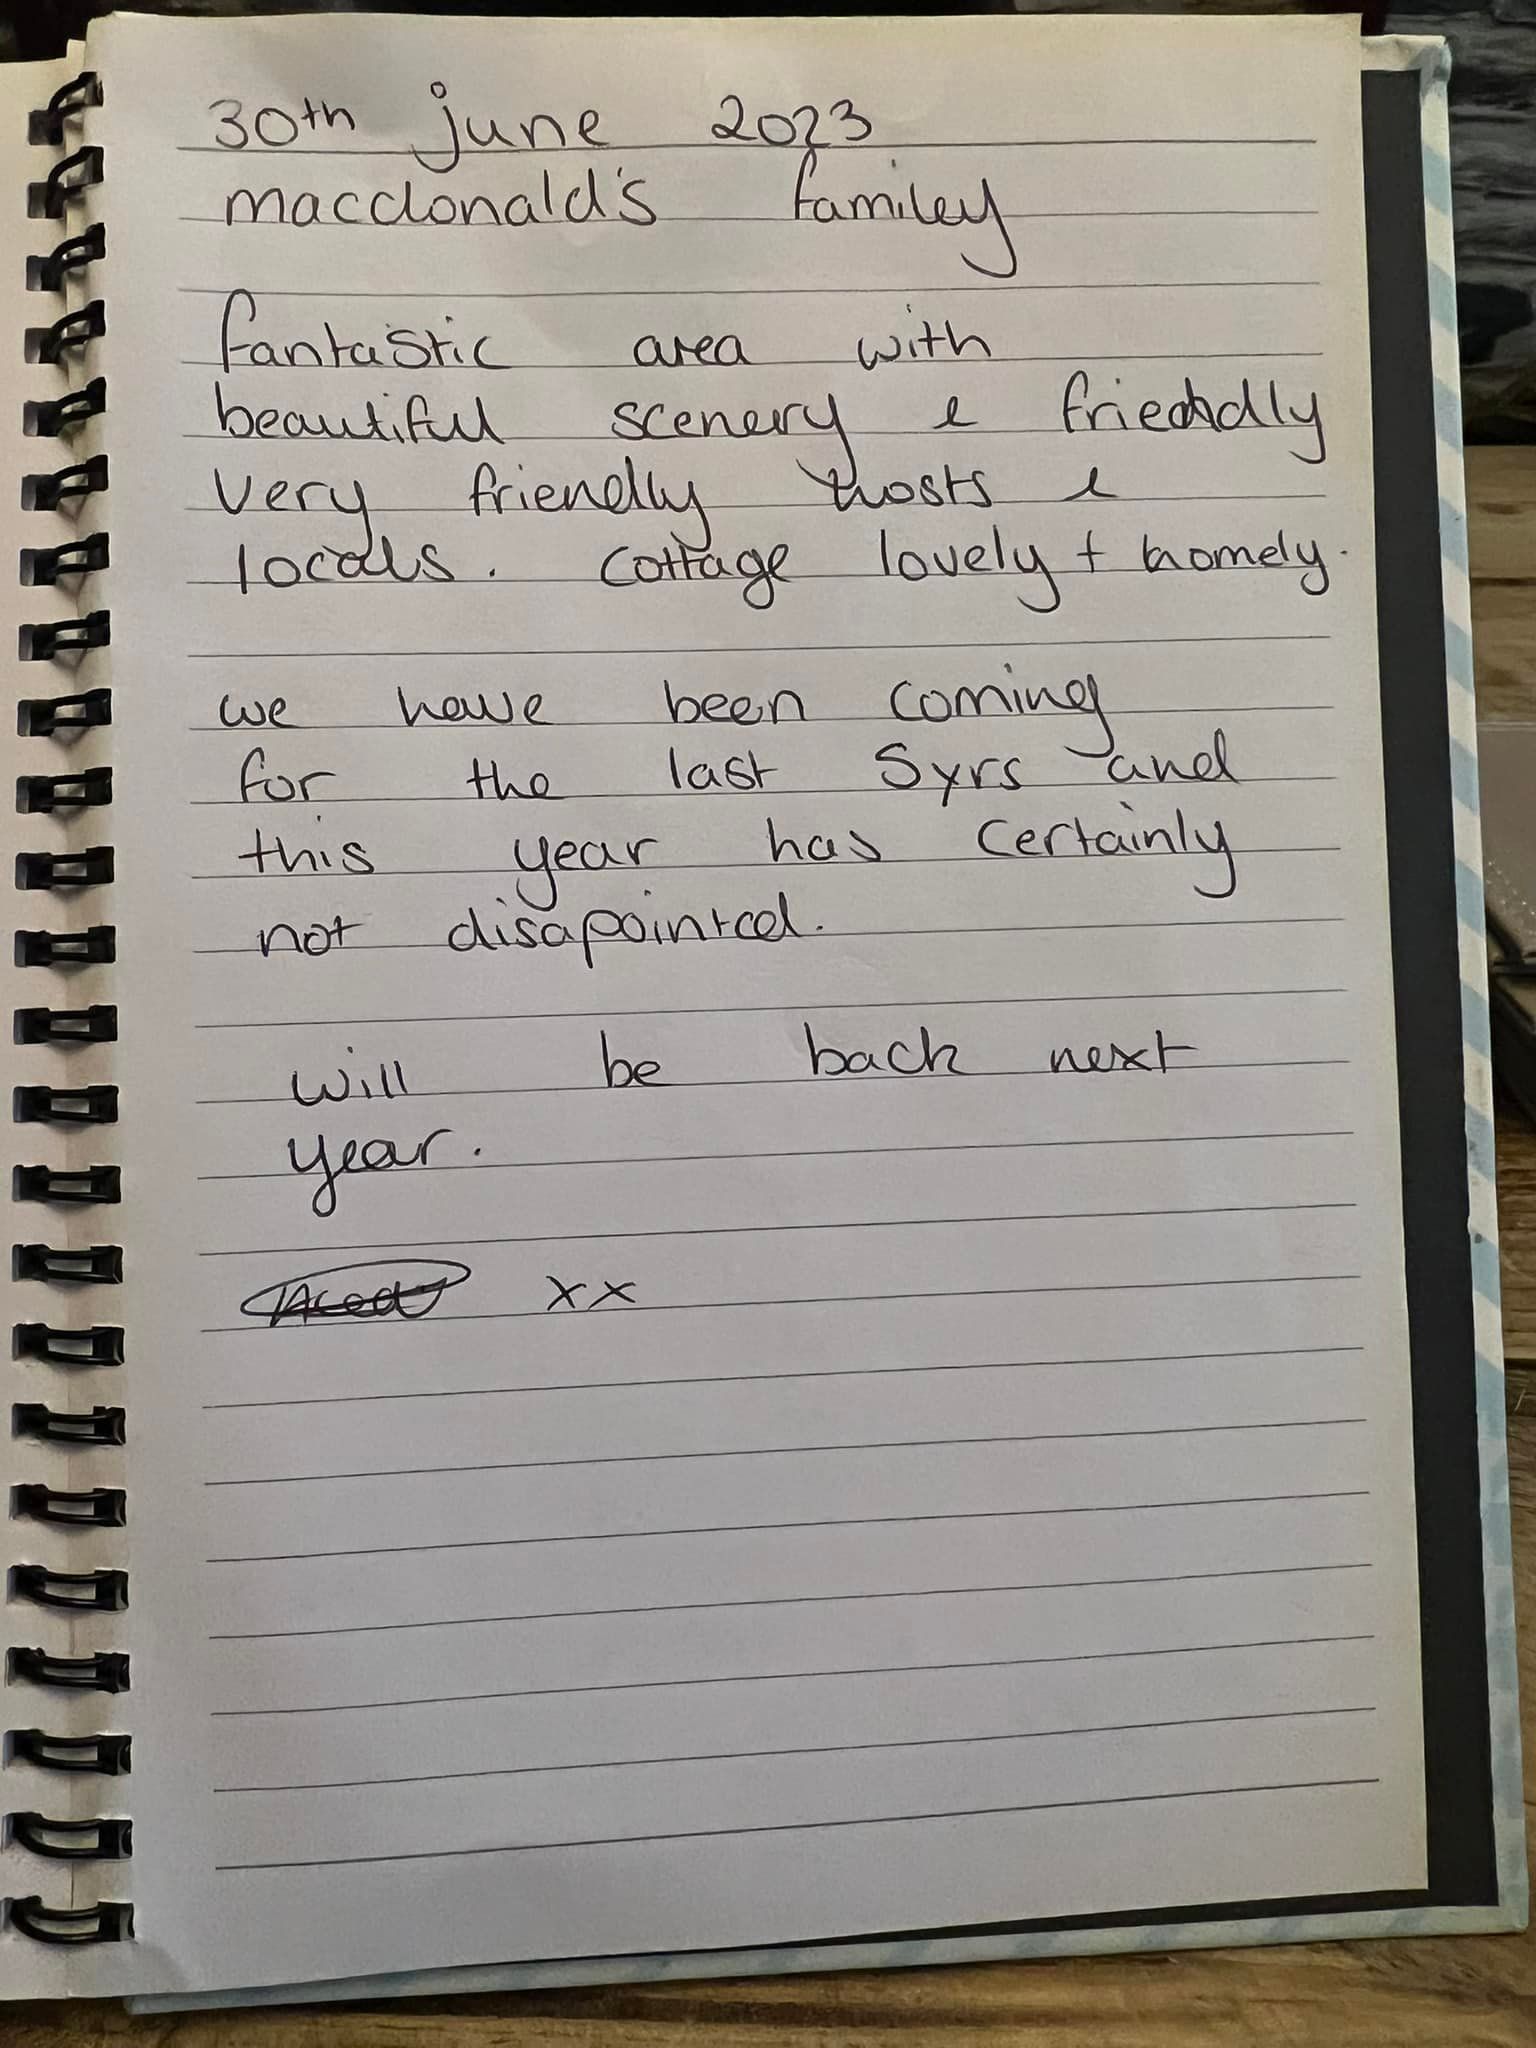 30th june 2023
macdonald's familey
fantastic area with
beautiful scenery & friendly
very friendly hosts &
locals. cottage lovely + homely.
we have been coming
for the last 5yrs and
this year has certainly
not disapointed.
will be back next
year.
xx